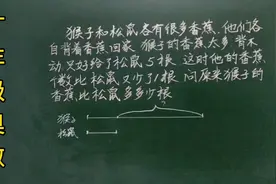 猴子和松鼠各有很多香蕉.他们各
自背着香蕉回家 猴子的香蕉太多 背不
动.只好给了松鼠5根 这时他的香蕉
个数比松鼠又少了1根 问原来猴子的
香蕉比松鼠多多少根
?
猴子
松鼠